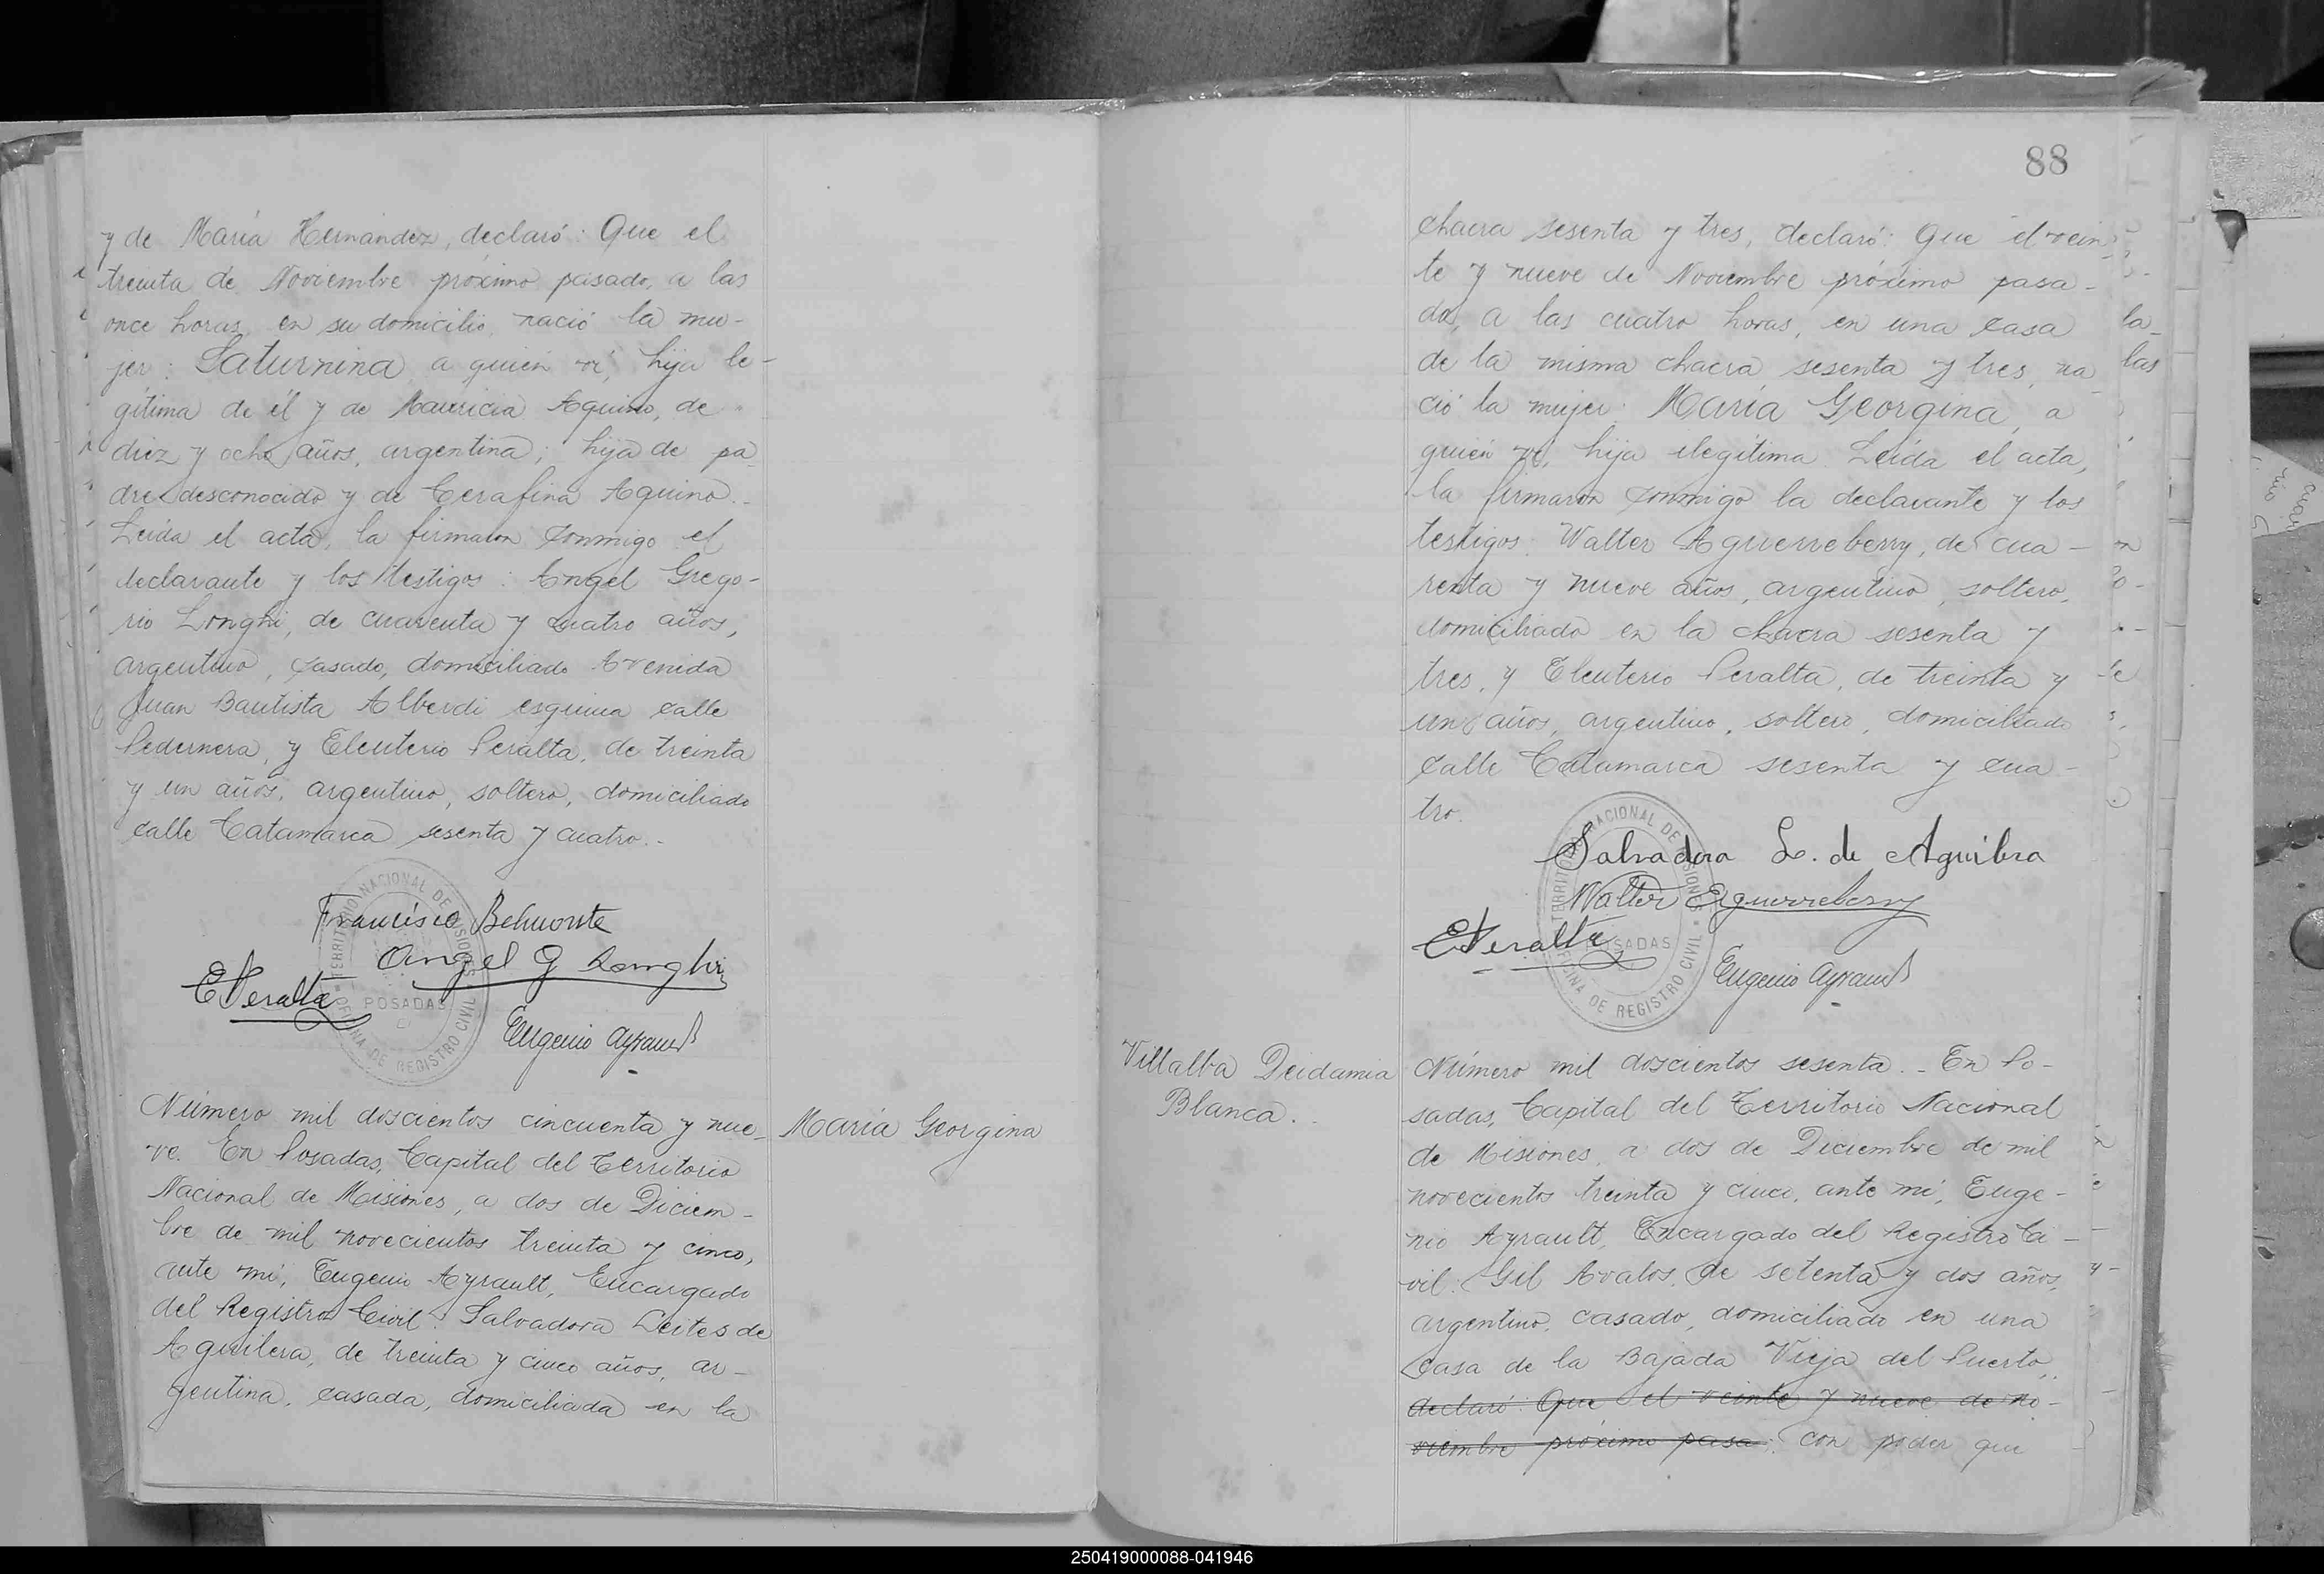 y de María Hernández, declaró: Que el
treinta de Noviembre próximo pasado, a las
once horas, en su domicilio, nació la mu-
jer: Saturnina, a quién ví, hija le-
gítima de él y de Mauricia Aquino, de
diez y ocho años, argentina; hija de pa
dre desconocido y de Cerafina Aquino.-
Leída el acta, la firmaron conmigo el
declarante y los testigos: Angel Grego-
rio Longhi, de cuarenta y cuatro años,
argentino, casado, domiciliado Avenida
Juan Bautista Alberdi esquina calle
Pedernera, y Eleuterio Peralta, de treinta
y un años, argentino, soltero, domiciliado
calle Catamarca sesenta y cuatro.-
Francisco Belmonte
Angel G Longhi
EPeralta
Eugenio Ayrault
TERRITORIO NACIONAL DE MISIONES
POSADAS
OFICINA DE REGISTRO CIVIL
Número mil doscientos cincuenta y nue-
ve. En Posadas, Capital del Territorio
Nacional de Misiones, a dos de Diciem-
bre de mil novecientos treinta y cinco,
ante mí, Eugenio Ayrault, Encargado
del Registro Civil: Salvadora Leites de
Aguilera, de treinta y cinco años, ar-
gentina, casada, domiciliada en la
María Georgina
88
chacra sesenta y tres, declaró: Que el vein
te y nueve de Noviembre próximo pasa-
do, a las cuatro horas, en una casa
de la misma chacra sesenta y tres, na
ció la mujer: María Georgina, a
quién ví, hija ilegítima. Leída el acta,
la firmaron conmigo la declarante y los
testigos: Walter Aguerreberry, de cua-
renta y nueve años, argentino, soltero,
domiciliado en la chacra sesenta y
tres, y Eleuterio Peralta, de treinta y
un años, argentino, soltero, domiciliado
calle Catamarca sesenta y cua-
tro.
Salvadora L. de Aguilera
Walter Eguerreberry
EPeralta
Eugenio Ayrault
TERRITORIO NACIONAL DE MISIONES
POSADAS
OFICINA DE REGISTRO CIVIL
Villalba Deidamia
Blanca.
Número mil doscientos sesenta.- En Po-
sadas, Capital del Territorio Nacional
de Misiones, a dos de Diciembre de mil
novecientos treinta y cinco, ante mí, Euge-
nio Ayrault, Encargado del Registro Ci-
vil: Gil Avalos, de setenta y dos años,
argentino, casado, domiciliado en una
casa de la Bajada Vieja del Puerto,
declaró: Que el veinte y nueve de No-
viembre próximo pasa: con poder que
la
las
250419000088-041946